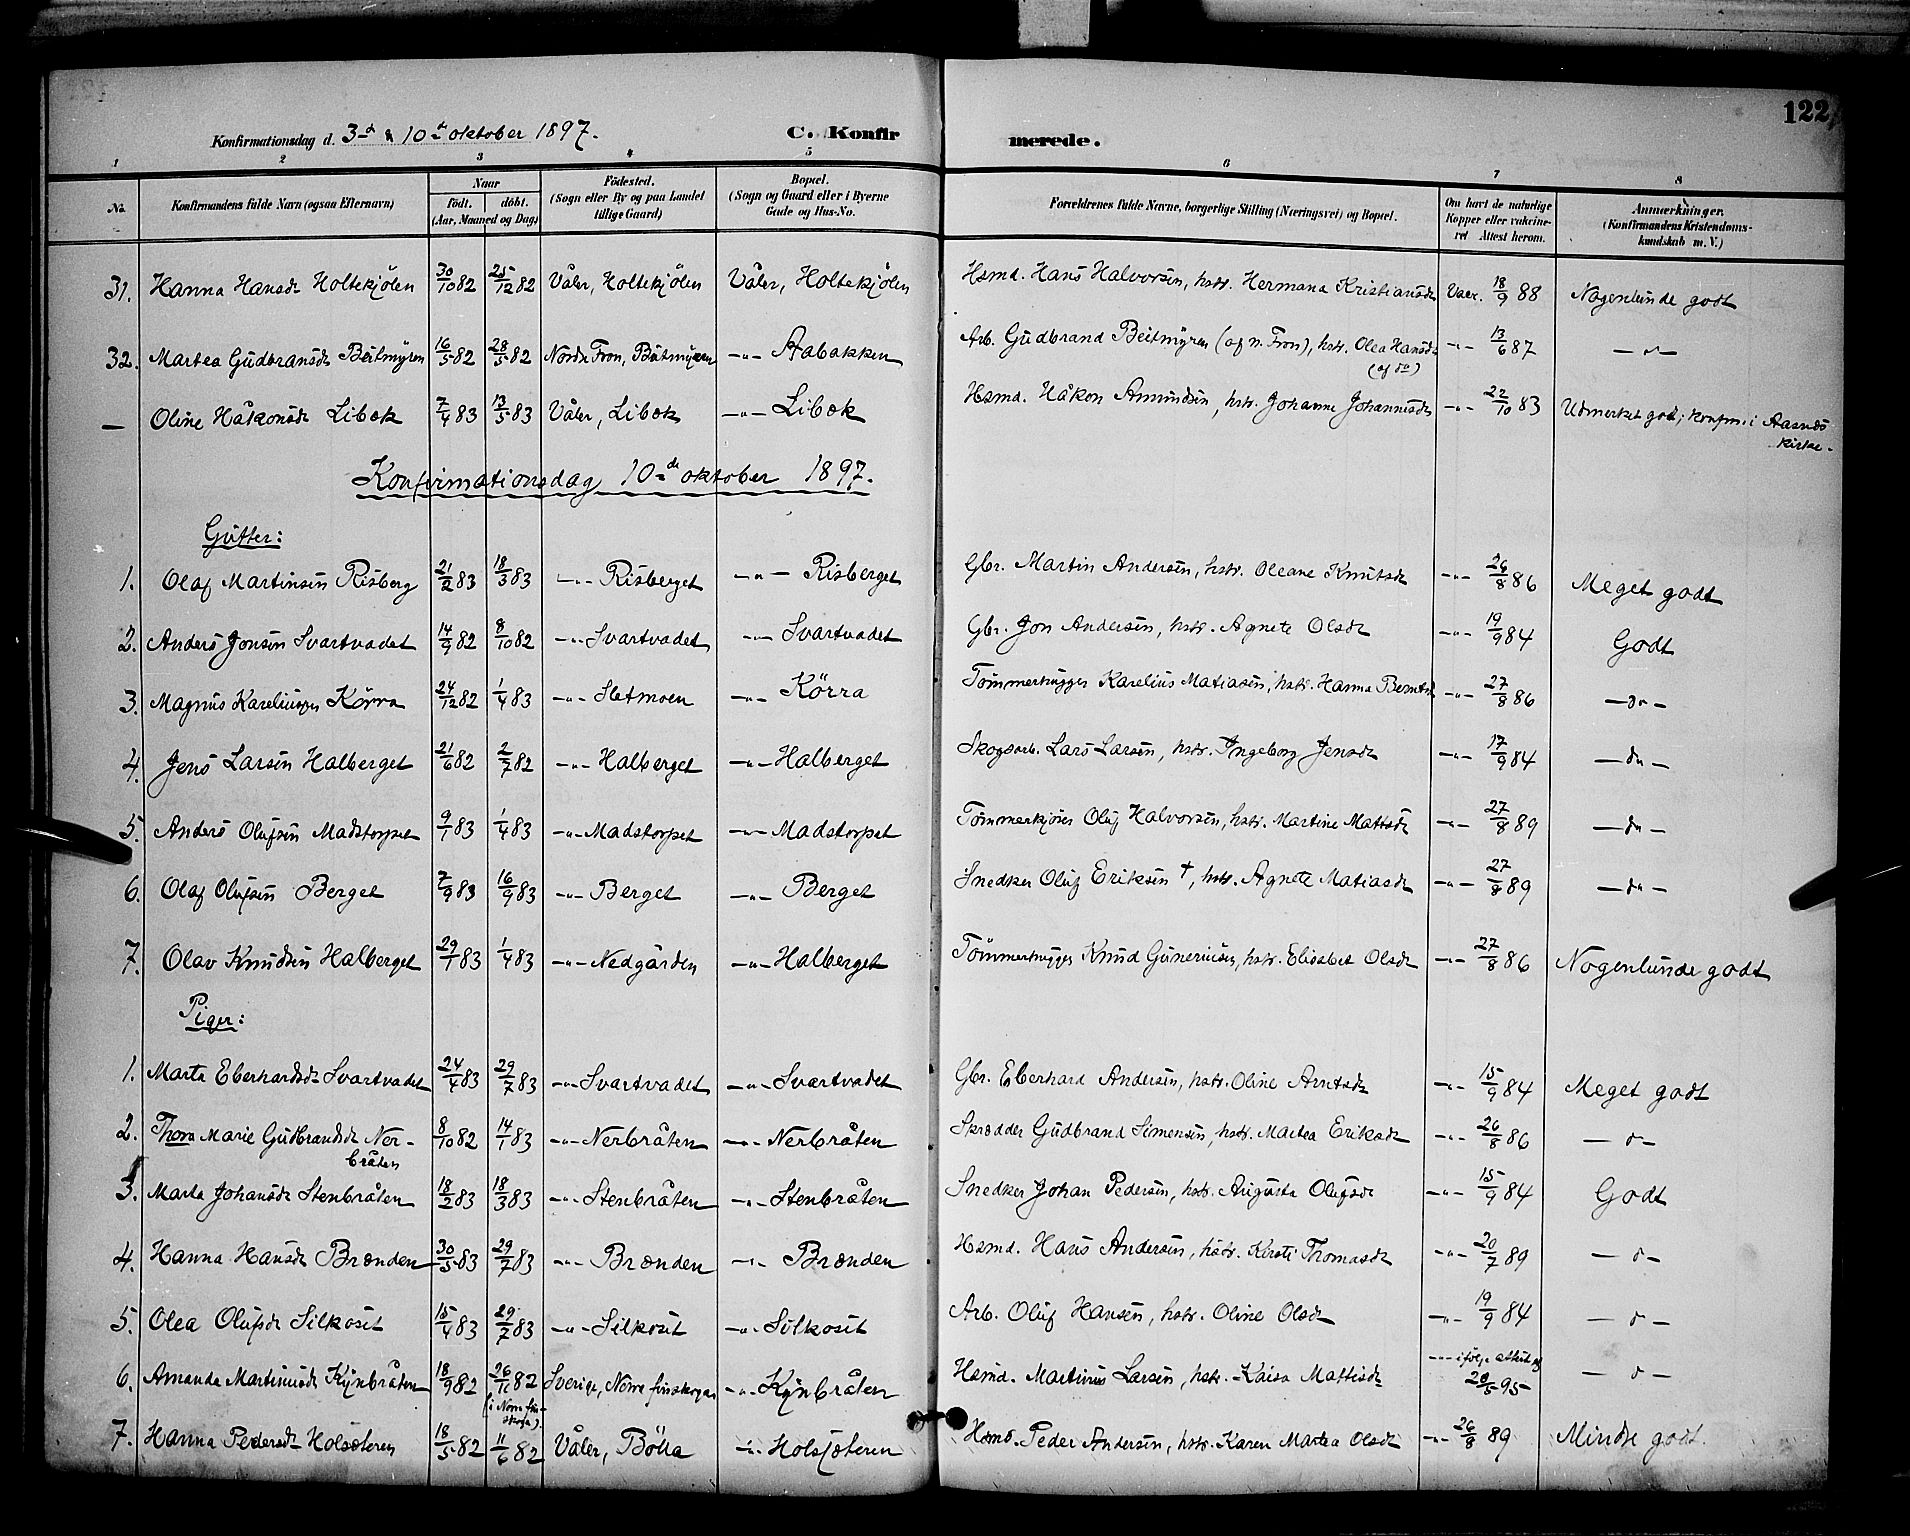 122
Konfirmationsdag d. 3die & 10de oktober 1897. C. Konfirmerede.
1 2 3 4 5 6 7 8
No. Konfirmandens fulde Navn (ogsaa Efternavn) Naar født. døbt. (Aar, Maaned og Dag) Fødested. (Sogn eller By og paa Landet tillige Gaard) Bopæl. (Sogn og Gaard eller i Byerne Gade og Hus-No. Forældrenes fulde Navne, borgerlige Stilling (Næringsvei) og Bopæl. Om havt de naturlige Kopper eller vakcineret Attest herom. Anmærkninger. (Konfirmandens Kristendomskundskab m. V.)
31. Hanna Hansdr Holtekjölen 30/10 82 25/12 82 Våler, Holtekjölen Våler, Holtekjölen Hsmd. Hans Halvorsen, hstr. Hermana Kristiansdr Vacr. 18/9 88 Nogenlunde godt
32. Martea Gudbransdr Beitmyren 16/5 82 28/5 82 Nordre Fron, Beitmyren -"- Aabakken Arb. Gudbrand Beitmyren (af n. Fron), hstr. Olea Hansdr (af do) -"- 13/6 87 -"-
— Oline Håkonsdr Libæk 7/4 83 13/5 83 Våler, Libæk -"- Libæk Hsmd. Håkon Amundsen, hstr. Johanne Johannesdr -"- 22/10 83 Udmerket godt; konfirm. i Aasnes kirke.
Konfirmationsdag 10de oktober 1897.
Gutter:
1. Olaf Martinsen Risberg 21/2 83 18/3 83 -"- Risberget -"- Risberget Gbr. Martin Andersen, hstr. Oleane Knutsdr -"- 26/8 86 Meget godt
2. Anders Jonsen Svartvadet 14/9 82 8/10 82 -"- Svartvadet -"- Svartvadet Gbr. Jon Andersen, hstr. Agnete Olsdr -"- 19/9 84 Godt
3. Magnus Kareliussen Körra 24/12 82 1/4 83 -"- Sletmoen -"- Körra Tömmerhugger Karelius Matiasen, hstr. Hanna Berntsdr -"- 27/8 86 -do-
4. Jens Larsen Halberget 21/6 82 2/7 82 -"- Halberget -"- Halberget Skogsarb. Lars Larsen, hstr. Ingeborg Jensdr -"- 17/9 84 -do-
5. Anders Olufsen Madstorpet 9/1 83 1/4 83 -"- Madstorpet -"- Madstorpet Tömmerkjörer Oluf Halvorsen, hstr. Martine Mattsdr -"- 27/8 89 -do-
6. Olaf Olufsen Berget 7/9 83 16/9 83 -"- Berget -"- Berget Snedker Oluf Eriksen †, hstr. Agnete Matiasdr -"- 27/8 89 -do-
7. Olav Knudsen Halberget 29/1 83 1/4 83 -"- Nedgården -"- Halberget Tömmerhugger Knud Guneriusen, hstr. Elisabet Olsdr -"- 27/8 86 Nogenlunde godt
Piger:
1. Marta Eberhardsdr Svartvadet 24/4 83 29/7 83 -"- Svartvadet -"- Svartvadet Gbr. Eberhard Andersen, hstr. Oline Arntsdr -"- 15/9 84 Meget godt
2. Thora Marie Gudbrandsdr Nerbråten 8/10 82 14/1 83 -"- Nerbråten -"- Nerbråten Skrædder Gudbrand Simensen, hstr. Martea Eriksdr -"- 26/8 86 -"-
3. Marta Johansdr Stenbråten 18/2 83 18/3 83 -"- Stenbråten -"- Stenbråten Snedker Johan Pedersen, hstr. Augusta Olufsdr -"- 15/9 84 Godt
4. Hanna Hansdr Brænden 30/5 83 29/7 83 -"- Brænden -"- Brænden Hsmd. Hans Andersen, hstr. Kersti Thomasdr -"- 20/7 89 -"-
5. Olea Olufsdr Silkoset 15/4 83 29/7 83 -"- Silkoset -"- Silkoset Arb. Oluf Hansen, hstr. Oline Olsdr -"- 19/9 84 -"-
6. Amanda Martinusdr Kynbråten 18/9 82 26/11 82 (i Norre finskoga). Sverige, Norre finskogan -"- Kynbråten Hsmd. Martinus Larsen, hstr. Kaisa Mattisdr -"- ifölge attest af 28/5 95 -"-
7. Hanna Pedersdr Holsæteren 18/5 82 11/6 82 Våler, Bölla -"- Holsjæteren Hsmd. Peder Andersen, hstr. Karen Martea Olsdr -"- 26/8 89 Mindre godt.